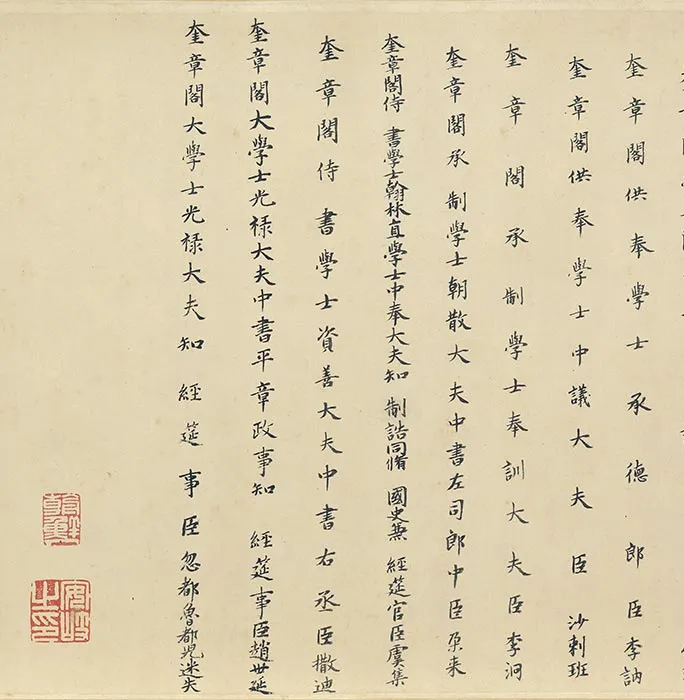 奎章閣供奉學士承德郎臣李訥
奎章閣供奉學士中議大夫臣沙剌班
奎章閣承制學士奉訓大夫臣李泂
奎章閣承制學士朝散大夫中書左司郎中臣朶來
奎章閣侍書學士翰林直學士中奉大夫知制誥同脩國史兼經筵官臣虞集
奎章閣侍書學士資善大夫中書右丞臣撒迪
奎章閣大學士光祿大夫中書平章政事知經筵事臣趙世延
奎章閣大學士光祿大夫知經筵事臣忽都魯都兒迷失